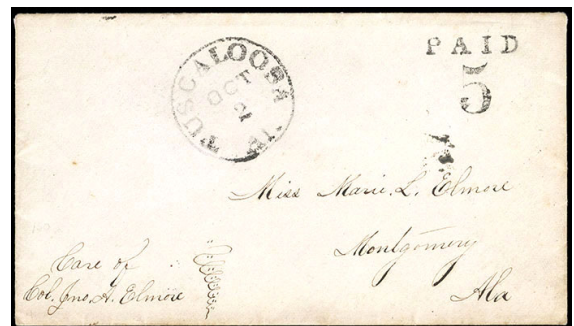 PAID
5
TUSCALOOSA Al.
OCT
21
Miss Marie. L. Elmore
Montgomery
Ala
Care of
Col. Jno. A. Elmore